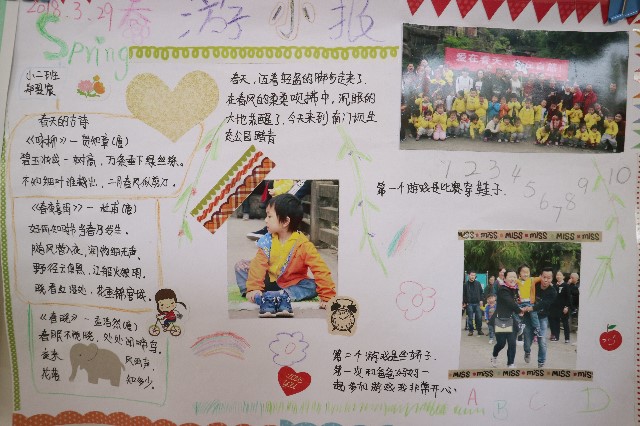 2018.3.29 春游小报
Spring
小二班
春天的古诗
《咏柳》—贺知章(唐)
碧玉妆成一树高，万条垂下绿丝绦。
不知细叶谁裁出，二月春风似剪刀。
《春夜喜雨》—杜甫(唐)
好雨知时节当春乃发生。
随风潜入夜，润物细无声。
野径云俱黑，江船火独明。
晓看红湿处，花重锦官城。
《春晓》—孟浩然(唐)
春眠不觉晓，处处闻啼鸟。
夜来风雨声，
花落知多少。
春天，迈着轻盈的脚步走来了，
在春风的柔柔吹拂中，沉眠的
大地苏醒了，今天来到南门坝生
态公园踏青
1 2 3 4 5 6 7 8 9 10
第一个游戏是比赛穿鞋子.
MISS MISS MISS MISS
第二个游戏是坐轿子.
第一次和爸爸妈妈一
起参加游戏我非常开心!
MISS MISS MISS MISS
A B C D